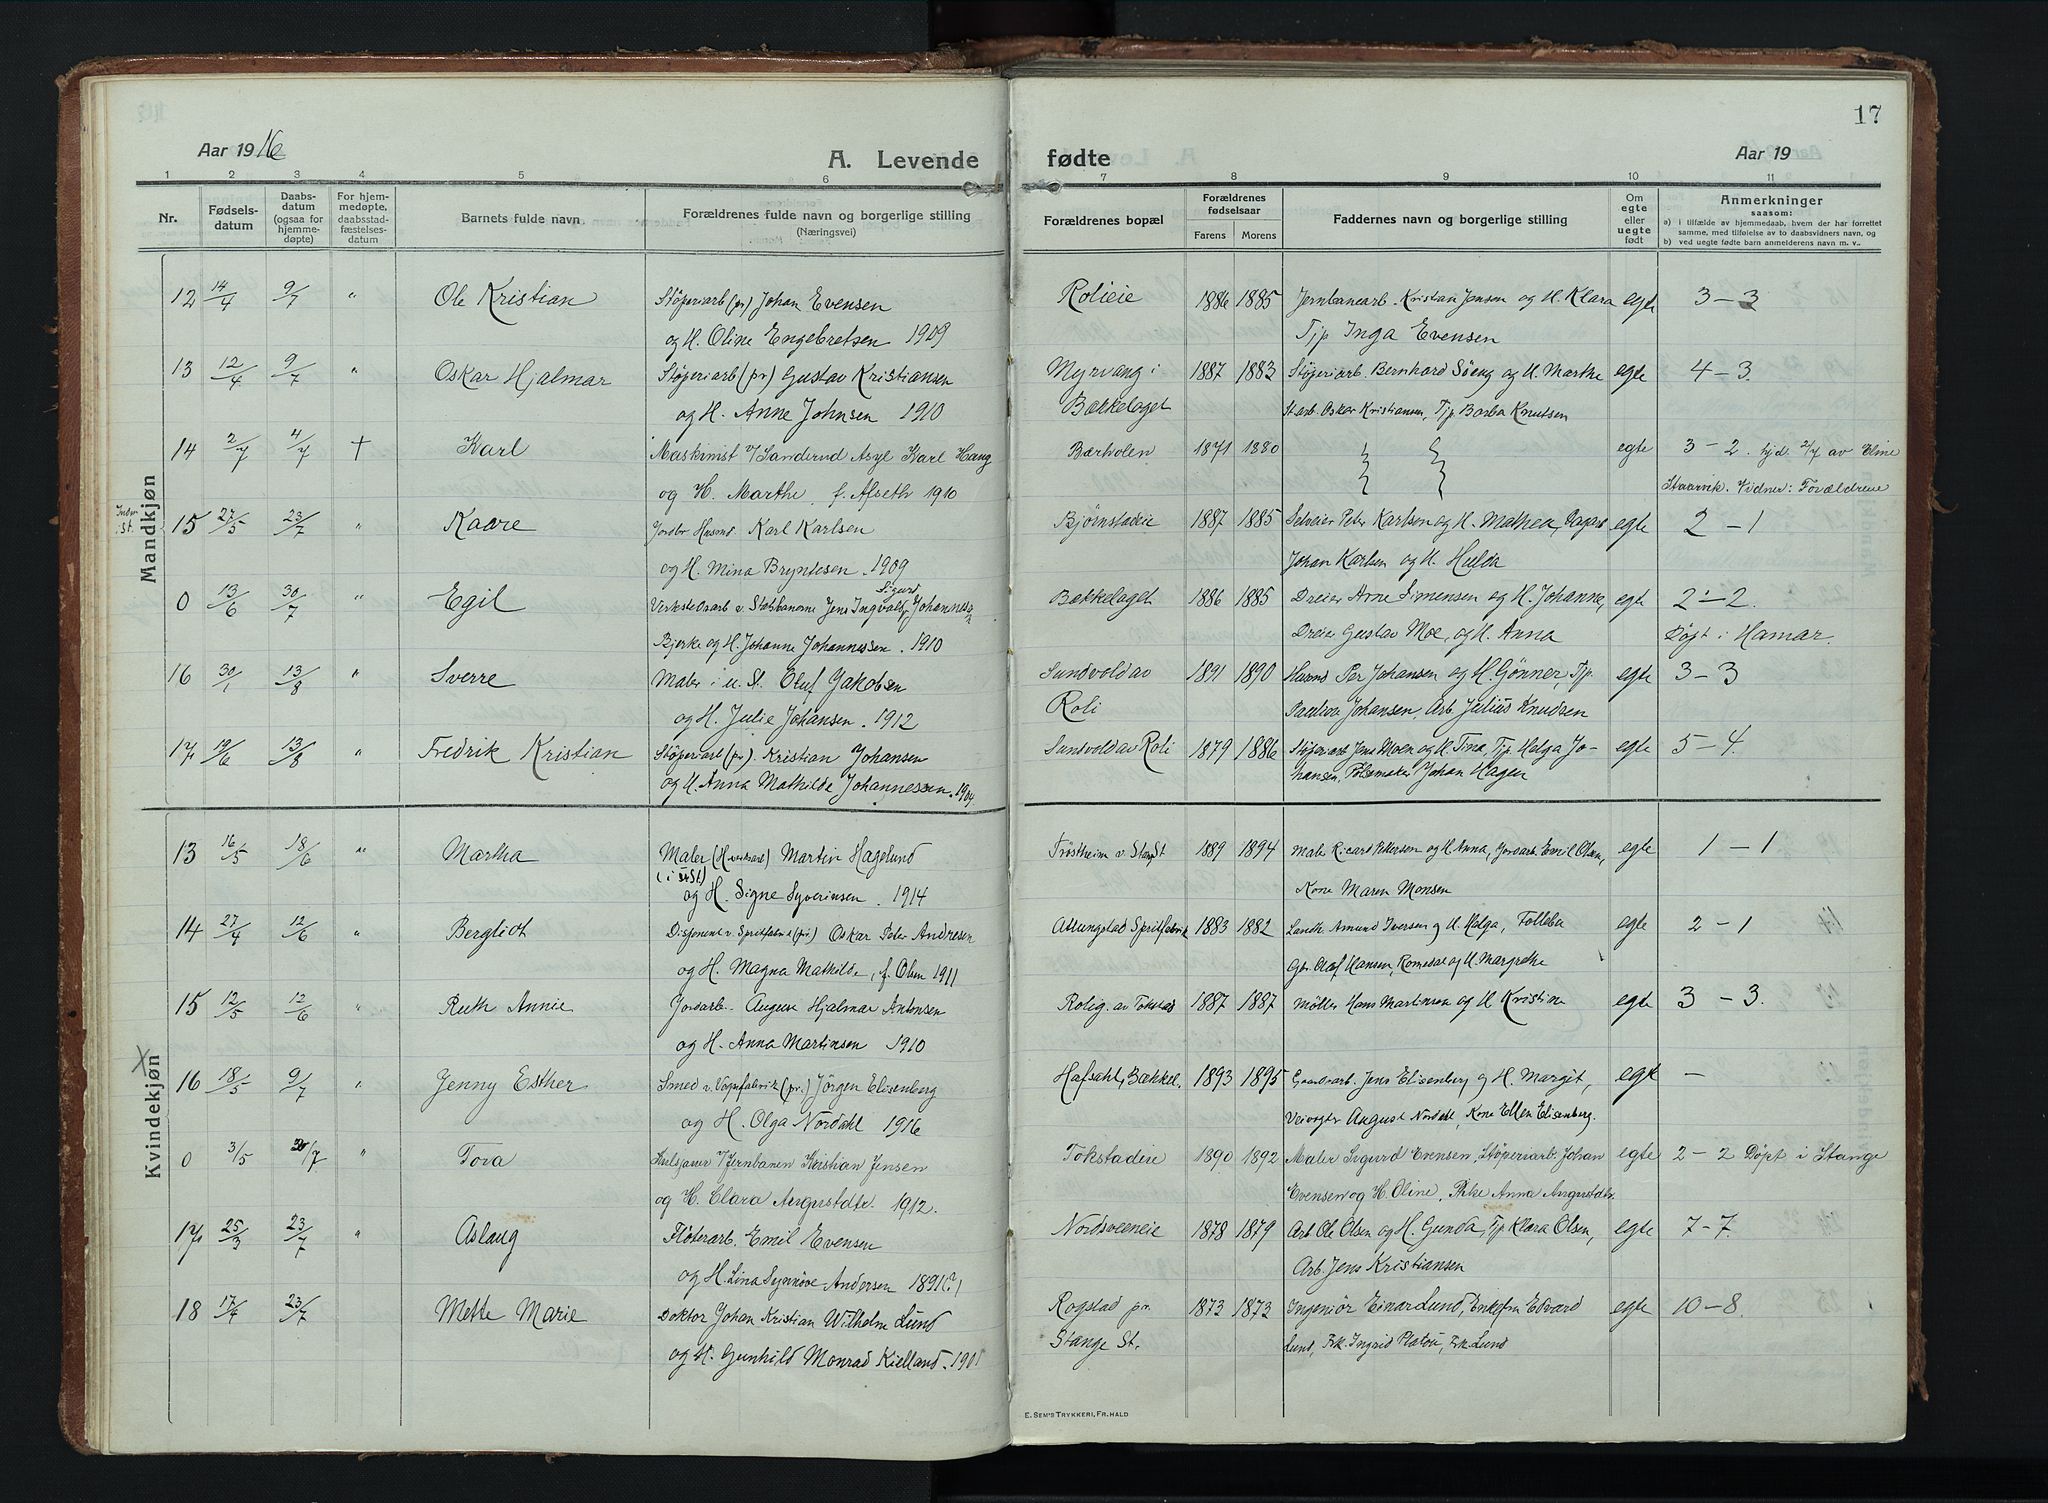 17
Aar 1916
A. Levende fødte
Aar 19
1 2 3 4 5 6 7 8 9 10 11
Nr.
Fødsels-
datum
Daabs-
datum
(ogsaa for
hjemme-
døpte)
For hjem-
medøpte,
daabsstad-
fæstelses-
datum
Barnets fulde navn
Forældrenes fulde navn og borgerlige stilling
(Næringsvei)
Forældrenes bopæl
Forældrenes
fødselsaar
Farens Morens
Faddernes navn og borgerlige stilling
Om
egte
eller
uegte
født
Anmerkninger
saasom:
a) i tilfælde av hjemmedaab, hvem der har forrettet
samme, med tilføielse av to daabsvidners navn, og
b) ved uegte fødte barn anmelderens navn m. v..
Mandkjøn
12 14/4 9/7 " Ole Kristian Støperiarb (pr) Johan Evensen Rolieie 1886 1885 Jernbanearb. Kristian Jensen og H. Klara egte 3-3
og H. Oline Engebretsen 1909 Tjp Inga Evensen
13 12/4 9/7 " Oskar Hjalmar Støperiarb (pr) Gustav Kristiansen Myrvang i 1887 1883 Støperiarb. Bernhard Söeng og H. Marthe egte 4-3.
og H. Anne Johnsen 1910 Bækkelaget St.arb. Oskar Kristiansen, Tjp Borba Knutsen
14 2/7 4/7 + Karl Maskinist v/ Sanderud Asyl Karl Haug Bærholen 1871 1880 egte 3-2. hjd. 2/7 av Eline
og H. Marthe f. Afseth 1910 Staarvik. Vidner: Forældrene
15 27/5 23/7 " Kaare Jordbr Husmd. Karl Karlsen Bjørnstadeie 1887 1885 Selveier Peter Karlsen og H. Mathea, Dagarb egte 2-1
og H. Mina Bryntesen. 1909 Johan Karlsen og H. Hulda
Sigurd
0 13/6 30/7 " Egil Verkstedsarb v. Statsbanerne Jens Ingvald, Johannes Bækkelaget 1886 1885 Dreier Arne Simensen og H. Johanne, egte 2-2.
Bjerke og H. Johanne Johannessen. 1910 Dreier Gustav Moe, og H. Anna Døpt i Hamar.
16 30/1 13/8 " Sverre Maler i u. St. Oluf Jakobsen Sundvold av 1891 1890 Husms Per Johansen og H. Gönner, Tjp. egte 3-3
og H. Julie Johansen. 1912 Roli Paulina Johansen, Arb. Julius Knudsen
17 19/6 13/8 " Fredrik Kristian Støperiarb (pr). Kristian Johansen Sundvold av Roli 1879 1886 Støperiarb Jens Moen og H. Tina, Tjp Helga Jo- egte 5-4.
og H. Anna Mathilde Johannessen. 1904 hansen, Pølsemaker Johan Hagen
Kvindekjøn
13 16/5 18/6 " Martha Maler (Haandverk) Martin Hagelund Trøstheim v. Stange St 1889 1894 Maler Ricard Pettersen og H. Anna, Jordarb. Emil Olsen, egte 1-1
og H. Signe Syverinsen. 1914 Kone Maren Monsen
14 27/4 12/6 " Bergliot Disponent v. Spritfabrik (pr.) Oskar Peter Andresen Atlungstad Spritfabrik 1883 1882 Landh. Amund Iversen og H. Helga, Folleba egte 2-1
og H. Magna Mathilde, f. Olsen 1911 Gbr. Olaf Hansen, Romedal og H. Margrethe
15 12/5 12/6 " Ruth Annie Jordarb. August Hjalmar Antonsen Rolig. av Tokstad 1887 1887 Møller Hans Martinsen og H. Kristine egte 3-3.
og H. Anna Martinsen 1910
16 18/5 9/7 " Jenny Esther Smed v. Vognfabrik (pr.) Jörgen Elisenberg Hafsahl, Bækkel. 1893 1895 Gaardsarb. Jens Elisenberg og H. Margit, egte -
og H. Olga Nordahl 1916 Veivogter August Nordahl, Kone Ellen Elisenberg.
0 3/5 30/7 " Tora Kulsjauer v/ Jernbanen Kristian Jensen Tokstadeie 1890 1892 Maler Sigurd Evensen, Støperiarb. Johan egte 2-2 Döpt i Stange
og H. Clara Augustdtr. 1912. Evensen og H. Oline, Pike Anna Augustdtr.
17 25/3 23/7 " Aslaug Fløterarb. Emil Evensen Nordsveeneie 1878 1879 Arb Ole Olsen og H. Gunda, Tjp Klara Olsen, egte 7-7.
og H. Lina Synnöve Andersen 1891(?) Arb. Jens Kristiansen
18 17/4 23/7 " Mette Marie Doktor Johan Kristian Wilhelm Lund Rogstad pr. 1873 1873 Ingeniör Einar Lund, Enkefru Edvard egte 10-8.
og H. Gunhild Monrad Kielland. Stange St. Lund, Frk. Ingrid Platou, Frk Lund
E. SEM'S TRYKKERI, FR.HALD